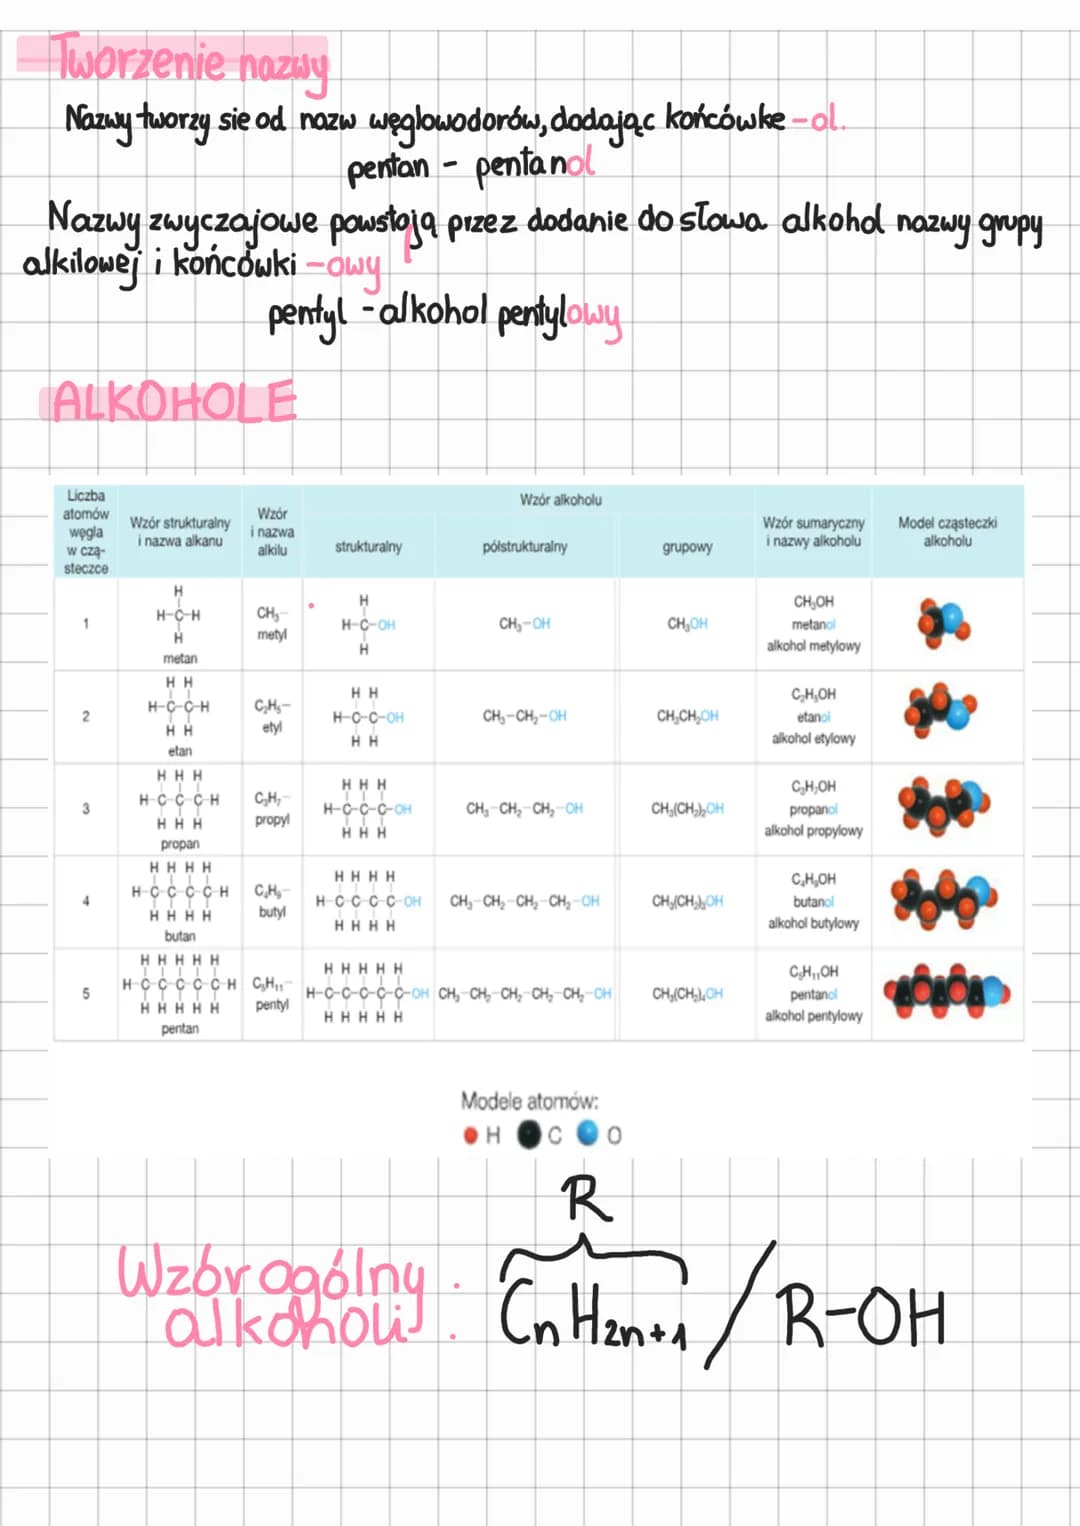 Tworzenie nazwy
Nazwy tworzy sie od nazw węglowodorów, dodając końcówke -ol.
pentan - pentanol
Nazwy zwyczajowe powstają przez dodanie do słowa alkohol nazwy grupy
alkilowej i końcówki -owy
pentyl - alkohol pentylowy
ALKOHOLE
Liczba atomów węgla w czą- steczce
Wzór strukturalny i nazwa alkanu
Wzór i nazwa alkilu
Wzór alkoholu
strukturalny
półstrukturalny
grupowy
Wzór sumaryczny i nazwy alkoholu
Model cząsteczki alkoholu
1
H
H-C-H
H
metan
CH₃-
metyl
H
H-C-OH
H
CH₃-OH
CH₃OH
CH₃OH
metanol
alkohol metylowy
2
H H
H-C-C-H
H H
etan
C₂H₅-
etyl
H H
H-C-C-OH
H H
CH₃-CH₂-OH
CH₃CH₂OH
C₂H₅OH
etanol
alkohol etylowy
3
H H H
H-C-C-C-H
H H H
propan
C₃H₇-
propyl
H H H
H-C-C-C-OH
H H H
CH₃-CH₂-CH₂-OH
CH₃(CH₂)₂OH
C₃H₇OH
propanol
alkohol propylowy
4
H H H H
H-C-C-C-C-H
H H H H
butan
C₄H₉-
butyl
H H H H
H-C-C-C-C-OH
H H H H
CH₃-CH₂-CH₂-CH₂-OH
CH₃(CH₂)₃OH
C₄H₉OH
butanol
alkohol butylowy
5
H H H H H
H-C-C-C-C-C-H
H H H H H
pentan
C₅H₁₁-
pentyl
H H H H H
H-C-C-C-C-C-OH
H H H H H
CH₃-CH₂-CH₂-CH₂-CH₂-OH
CH₃(CH₂)₄OH
C₅H₁₁OH
pentanol
alkohol pentylowy
Modele atomów:
H C O
R
Wzór ogólny alkoholi: CnH2n+1 / R-OH